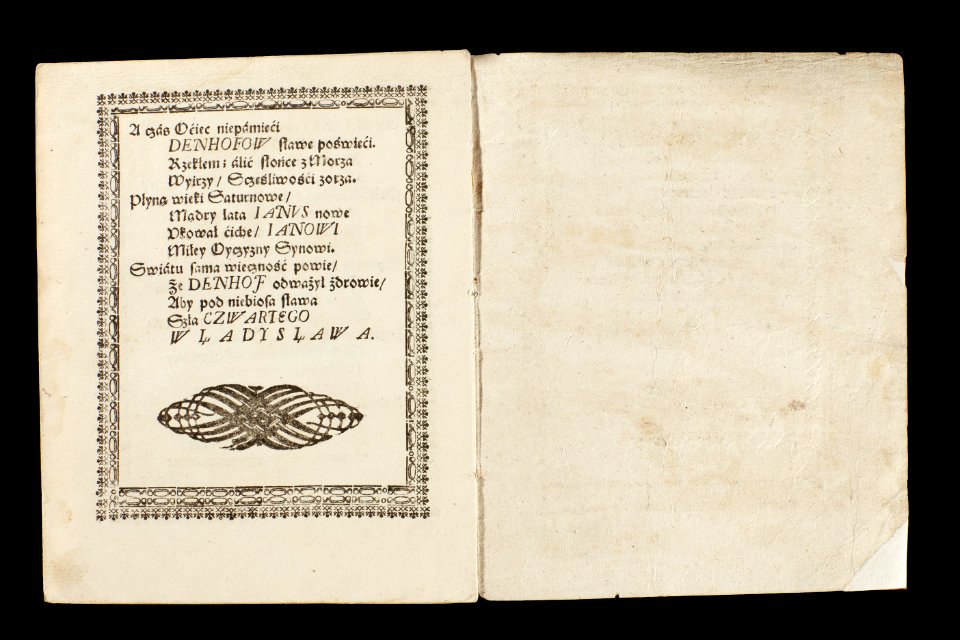 A czás Oćiec niepámięći
DENHOFOW sławę poświęći.
Rzekłem; álić słońce z Morza
Wyirzy/ Sczęśliwośći zorza.
Płyną wieki Saturnowe/
Mądry lata IANVS nowe
Vkował ćiche/ IANOWI
Miłey Oyczyzny Synowi.
Swiátu sama wieczność powie/
Że DENHOF odważył zdrowie/
Aby pod niebiosa sława
Szła CZWARTEGO
WŁADYSŁAWA.